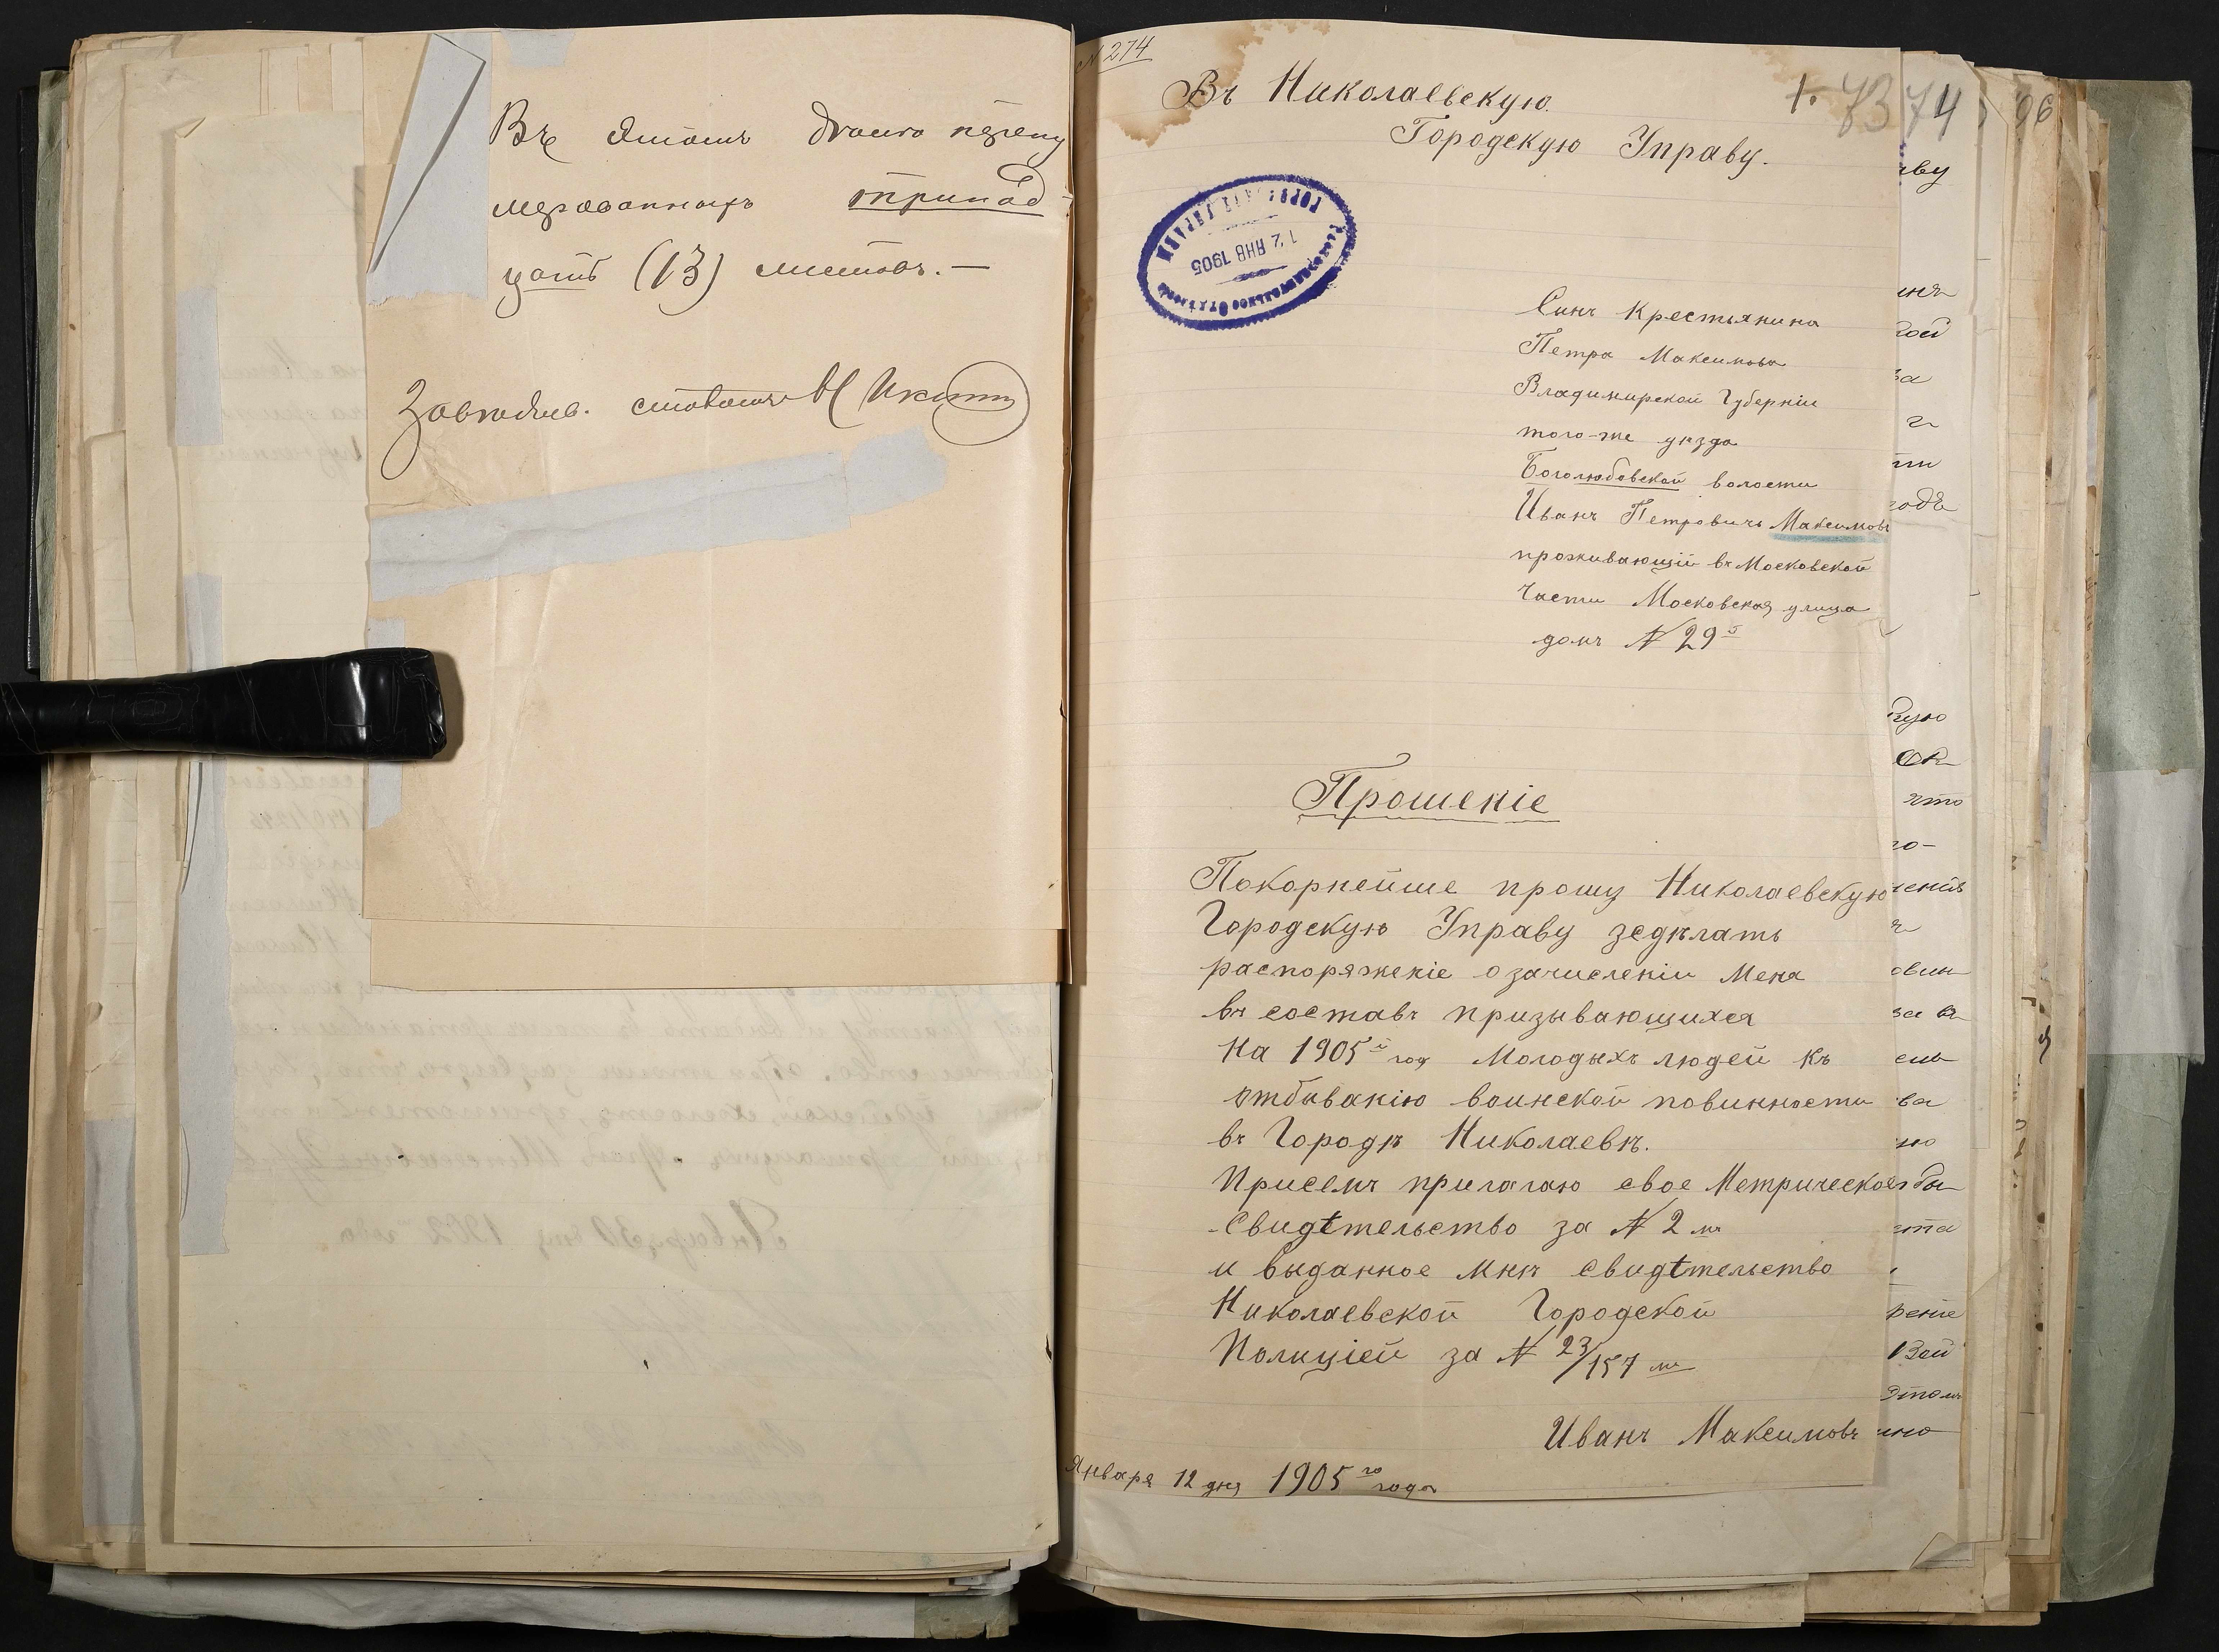 Въ этомъ дѣлѣ перену
мерованныхъ тринад-
цать (13) листовъ.—
Завѣдыв. столомъ
№ 274
Въ Николаевскую
1. 73 74
96
Городскую Управу.
12 ЯНВ 1905
Сынъ Крестьянина
Петра Максимова
Владимирской Губерніи
того-же уѣзда
Боголюбовской волости
Иванъ Петровичъ Максимовъ
проживающій въ Московской
Части Московская улица
домъ № 29
Прошеніе
Покорнейше прошу Николаевскую
Городскую Управу зедѣлать
распоряженіе о зачисленіи Меня
въ составъ призывающихся
На 1905й год Молодыхъ людей Къ
отбыванію воинской повинности
въ Городѣ Николаевѣ.
Присемъ прилагаю свое Метрическое
Свидѣтельство за № 2 мъ
и выданное Мнѣ свидѣтельство
Николаевской Городской
Полиціей за № 23/157 мъ
Иванъ Максимовъ
Января 12 дня 1905 го года